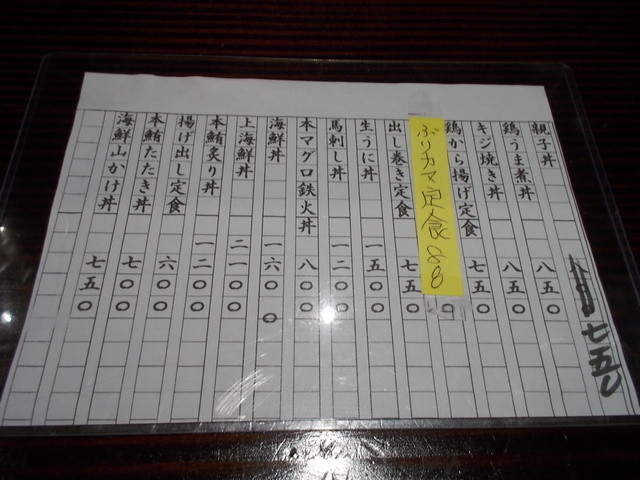 七五〇
親子丼 八五〇
鶏うま煮丼 八五〇
キジ焼き丼 七五〇
鶏から揚げ定食
ぶりカマ定食 88
出し巻き定食 七五〇
生うに丼 一五〇〇
馬刺し丼 一二〇〇
本マグロ鉄火丼 八〇〇
海鮮丼 一六〇〇
上海鮮丼 二一〇〇
本鮪炙り丼 一二〇〇
揚げ出し定食 六〇〇
本鮪たたき丼 七〇〇
海鮮山かけ丼 七五〇